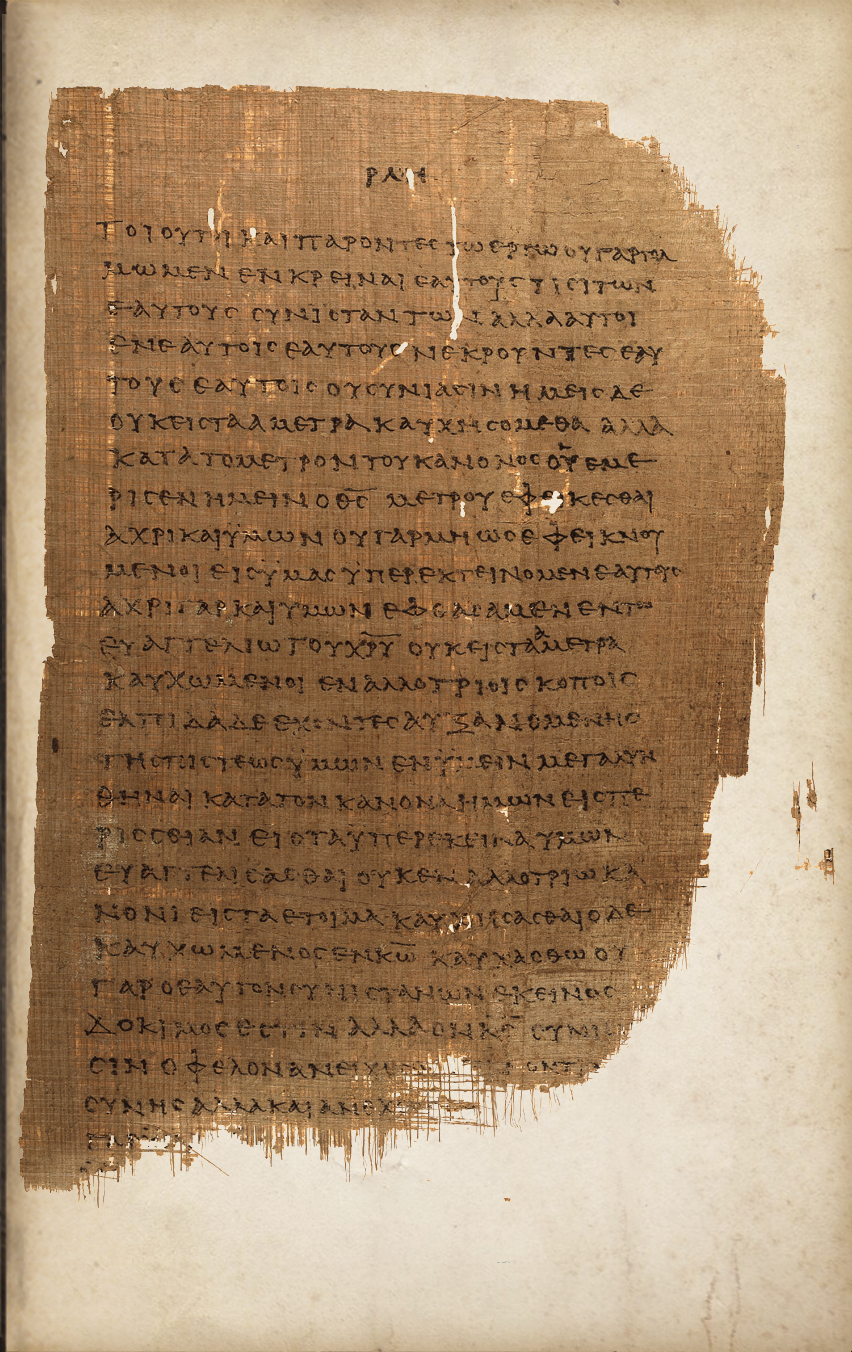 ΡΛΗ
ΤΟΙΟΥΤΟΙ ΚΑΙ ΠΑΡΟΝΤΕΣ ΕΡΓΩ ΟΥ ΓΑΡ
ΜΩΜΕΝ ΕΝΚΡΕΙΝΑΙ ΕΑΥΤΟΥϹ ΤΙϹΙ ΤΩΝ
ΕΑΥΤΟΥϹ ϹΥΝΙϹΤΑΝΤΩΝ ΑΛΛΑ ΑΥΤΟΙ
ΕΝ ΕΑΥΤΟΙϹ ΕΑΥΤΟΥϹ ΕΑΥ
ΤΟΥϹ ΕΑΥΤΟΙϹ ΟΥ ϹΥΝΙΑϹΙΝ ΗΜΕΙϹ ΔΕ
ΟΥΚ ΕΙϹ ΤΑ ΑΜΕΤΡΑ ΚΑΥΧΗϹΟΜΕΘΑ ΑΛΛΑ
ΚΑΤΑ ΤΟ ΜΕΤΡΟΝ ΤΟΥ ΚΑΝΟΝΟϹ ΟΥ ΕΜΕ
ΡΙϹΕΝ ΗΜΕΙΝ Ο ΘϹ ΜΕΤΡΟΥ ΕΦΕΙΚΕϹΘΑΙ
ΑΧΡΙ ΚΑΙ ΫΜΩΝ ΟΥ ΓΑΡ ΜΗ ΩϹ ΕΦΕΙΚΝΟΥ
ΜΕΝΟΙ ΕΙϹ ΫΜΑϹ ΫΠΕΡΕΚΤΕΙΝΟΜΕΝ ΕΑΥΤΟΥϹ
ΑΧΡΙ ΓΑΡ ΚΑΙ ΥΜΩΝ ΕΦΘΑϹΑΜΕΝ ΕΝ ΤΩ
ΕΥΑΓΓΕΛΙΩ ΤΟΥ ΧΡΥ ΟΥΚ ΕΙϹ ΤΑ ΑΜΕΤΡΑ
ΚΑΥΧΩΜΕΝΟΙ ΕΝ ΑΛΛΟΤΡΙΟΙϹ ΚΟΠΟΙϹ
ΕΛΠΙΔΑ ΔΕ ΕΧΟΝΤΕϹ ΑΥΞΑΝΟΜΕΝΗϹ
ΤΗϹ ΠΙϹΤΕΩϹ ΫΜΩΝ ΕΝ ΫΜΕΙΝ ΜΕΓΑΛΥΝ
ΘΗΝΑΙ ΚΑΤΑ ΤΟΝ ΚΑΝΟΝΑ ΗΜΩΝ ΕΙϹ ΠΕ
ΡΙϹϹΕΙΑΝ ΕΙϹ ΤΑ ΫΠΕΡΕΚΕΙΝΑ ΥΜΩΝ
ΕΥΑΓΓΕΛΙϹΑϹΘΑΙ ΟΥΚ ΕΝ ΑΛΛΟΤΡΙΩ ΚΑ
ΝΟΝΙ ΕΙϹ ΤΑ ΕΤΟΙΜΑ ΚΑΥΧΗϹΑϹΘΑΙ Ο ΔΕ
ΚΑΥΧΩΜΕΝΟϹ ΕΝ ΚΩ ΚΑΥΧΑϹΘΩ ΟΥ
ΓΑΡ Ο ΕΑΥΤΟΝ ϹΥΝΙϹΤΑΝΩΝ ΕΚΕΙΝΟϹ
ΔΟΚΙΜΟϹ ΕϹΤΙΝ ΑΛΛΑ ΟΝ ΚϹ ϹΥΝΙ
ϹΙΝ ΟΦΕΛΟΝ
ϹΥΝΗϹ ΑΛΛΑ ΚΑΙ